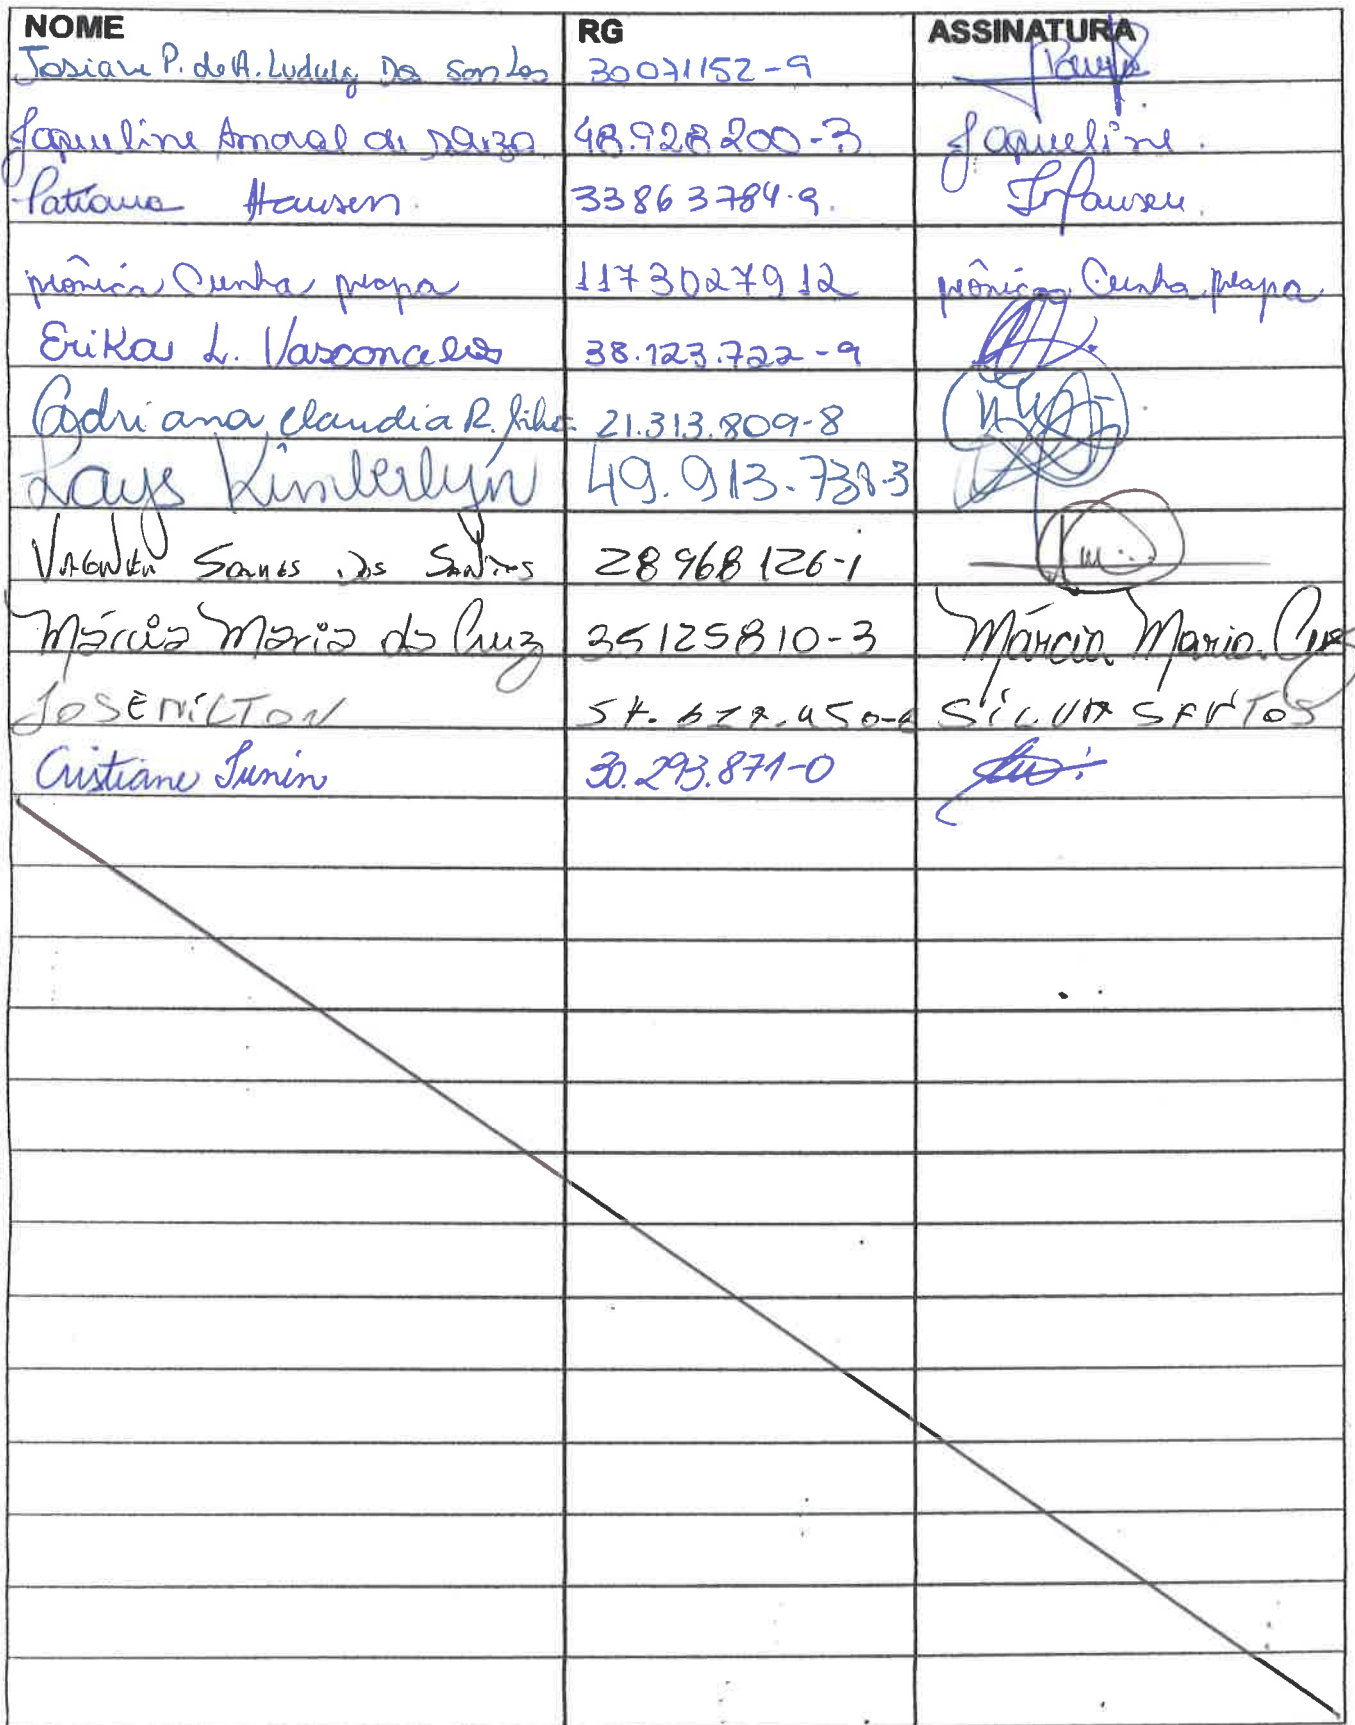 NOME RG ASSINATURA
Josiane P. de A. Ludwig Dos Santos 30071152-9
Jaqueline Amaral de Souza 48.928.200-3 Jaqueline.
Tatiana Hausen. 33863784-9. THausen.
Mônica Cunha Mapa 1173027912 Mônica Cunha Mapa
Erika L. Vasconcelos 38.123.722-9
Adriana Claudia R. 21.313.809-8
Lays Kimberlyn 49.913.738-3
Santos 28968126-1
Márcia Maria da Cruz 35125810-3 Márcia Maria Cruz
JOSENILTON SILVA SANTOS
Cristiane 30.293.871-0